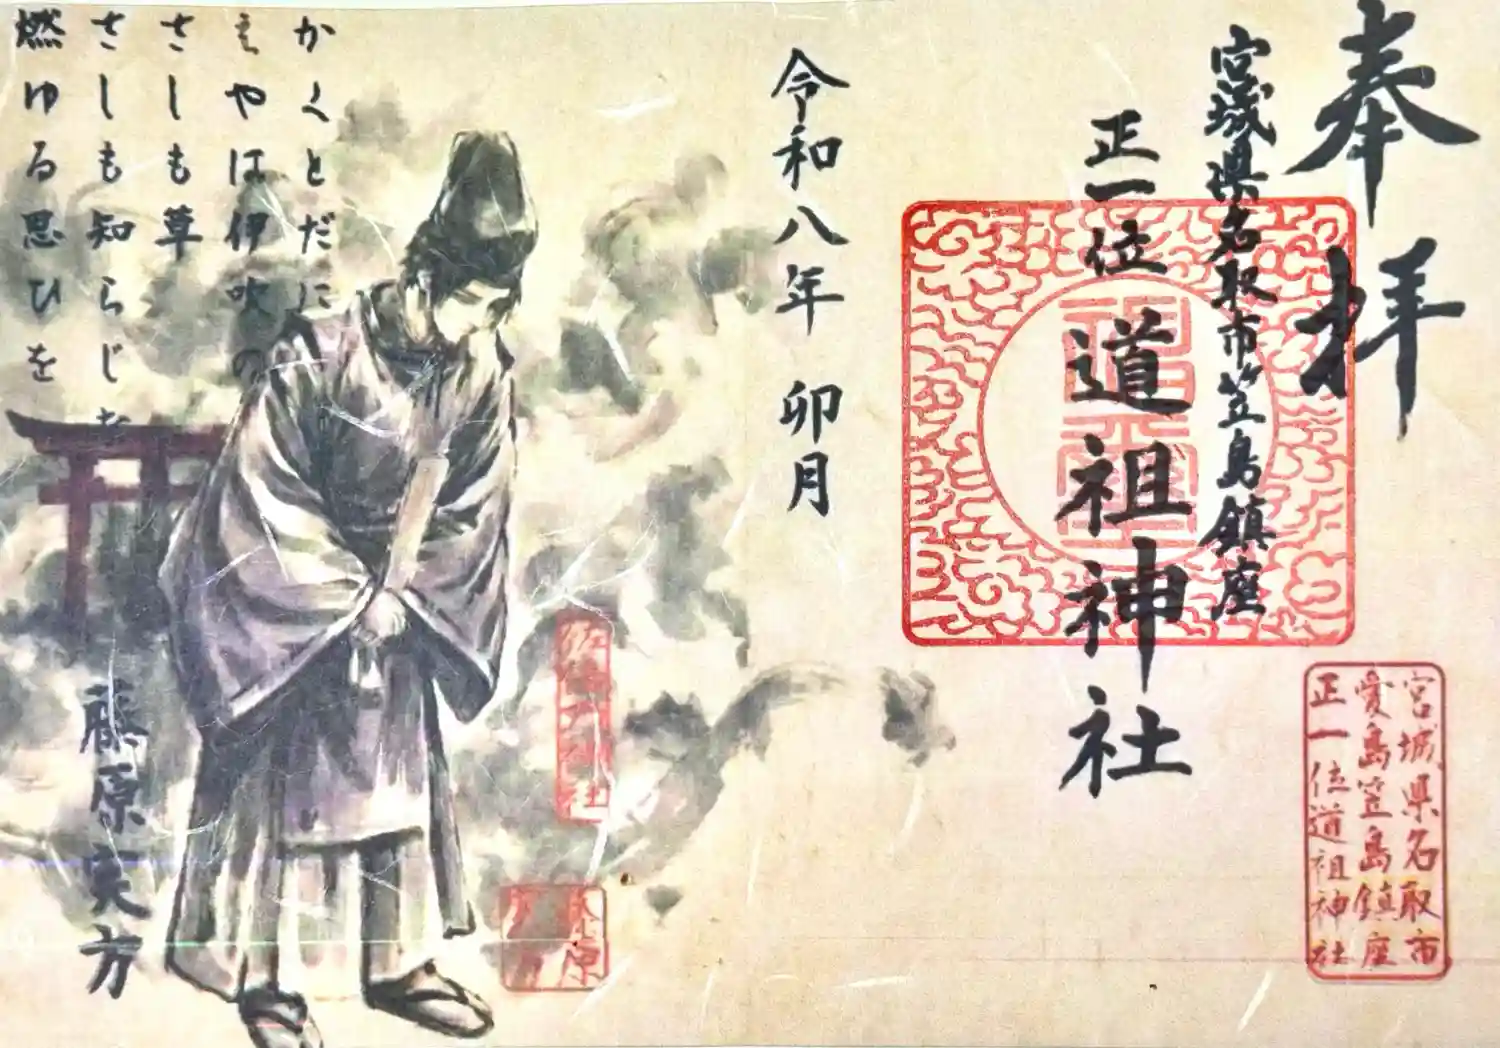 奉拝
宮城県名取市笠島鎮座
正一位 道祖神社
宮城県名取市
愛島笠島鎮座
正一位道祖神社
令和八年 卯月
かくとだに
えやは伊吹の
さしも草
さしも知らじな
燃ゆる思ひを
藤原実方